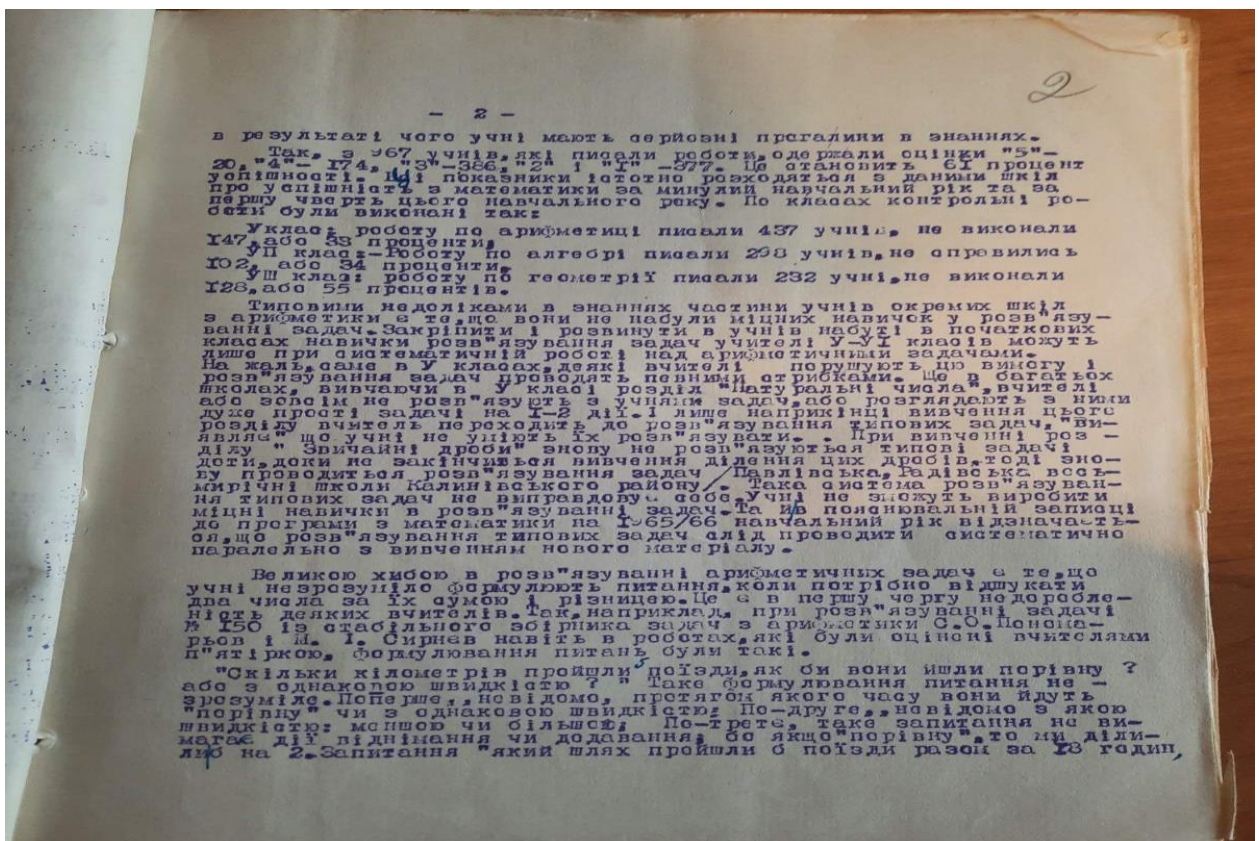 2
- 2 -
в результаті чого учні мають серйозні прогалини в знаннях.
Так, з 967 учнів,які писали роботи,одержали оцінки "5"-
20,"4"- I74, "3"-386,"2" і "I" -377. Це становить 6I процент
успішності. Ці показники істотно розходяться з даними шкіл
про успішність з математики за минулий навчальний рік та за
першу чверть цього навчального року. По класах контрольні ро-
боти були виконані так:
Уклас: роботу по арифметиці писали 437 учнів, не виконали
I47,або 33 проценти,
УП клас:-Роботу по алгебрі писали 298 учнів,не справились
I02, або 34 проценти,
УШ клас: роботу по геометрії писали 232 учні,не виконали
I28,або 55 процентів.
Типовими недоліками в знаннях частини учнів окремих шкіл
з арифметики є те,що вони не набули міцних навичок у розв"язу-
ванні задач.Закріпити і розвинути в учнів набуті в початкових
класах навички розв"язування задач учителі У-УІ класів можуть
лише при систематичній роботі над арифметичними задачами.
На жаль,саме в У класах,деякі вчителі порушують цю вимогу і
розв"язування задач проводять певними стрибками. Ще в багатьох
школах, вивчаючи в У класі розділ "Натуральні числа",вчителі
або зовсім не розв"язують з учнями задач,або розглядають з ними
дуже прості задачі на I-2 дії.І лише наприкінці вивчення цього
розділу вчитель переходить до розв"язування типових задач,"ви-
являє" що учні не уміють їх розв"язувати. . При вивченні роз -
ділу " Звичайні дроби" знову не розв"язуються типові задачі
доти,доки не закінчиться вивчення ділення цих дробів,тоді зно-
ву проводиться розв"язування задач /Павлівська,Радівська вось-
мирічні школи Калинівського району/. Така система розв"язуван-
ня типових задач не виправдовує себе.Учні не зможуть виробити
міцні навички в розв"язуванні задач.Та й в пояснювальній записці
до програми з математики на I965/66 навчальний рік відзначаєть-
ся,що розв"язування типових задач слід проводити систематично
паралельно з вивченням нового матеріалу.
Великою хибою в розв"язуванні арифметичних задач є те,що
учні незрозуміло формулюють питання,коли потрібно відшукати
два числа за їх сумою і різницею.Це є в першу чергу недоробле-
ність деяких вчителів.Так,наприклад, при розв"язуванні задачі
№ I50 із стабільного збірника задач з арифметики С.О.Понома-
рьов і М. І. Сирнєв навіть в роботах,які були оцінені вчителями
п"ятіркою, формулювання питань були такі.
"Скільки кілометрів пройшли б поїзди,як би вони йшли порівну ?
або з однаковою швидкістю ? " Таке формулювання питання не -
зрозуміле.Поперше,,невідомо, протягом якого часу вони йдуть
"порівну" чи з однаковою швидкістю; По-друге,,невідомо з якою
швидкістю: меншою чи більшою; По-третє, таке запитання не ви-
магає дії віднімання чи додавання; бо якщо"порівну",то ми діли-
ли б на 2.Запитання "який шлях пройшли б поїзди разом за I8 годин,